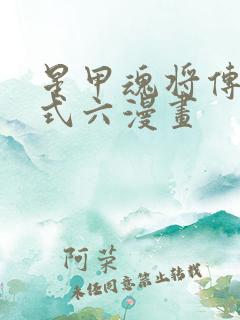 星甲魂将傳
式六漫畫
阿菜
未经同意禁止转载